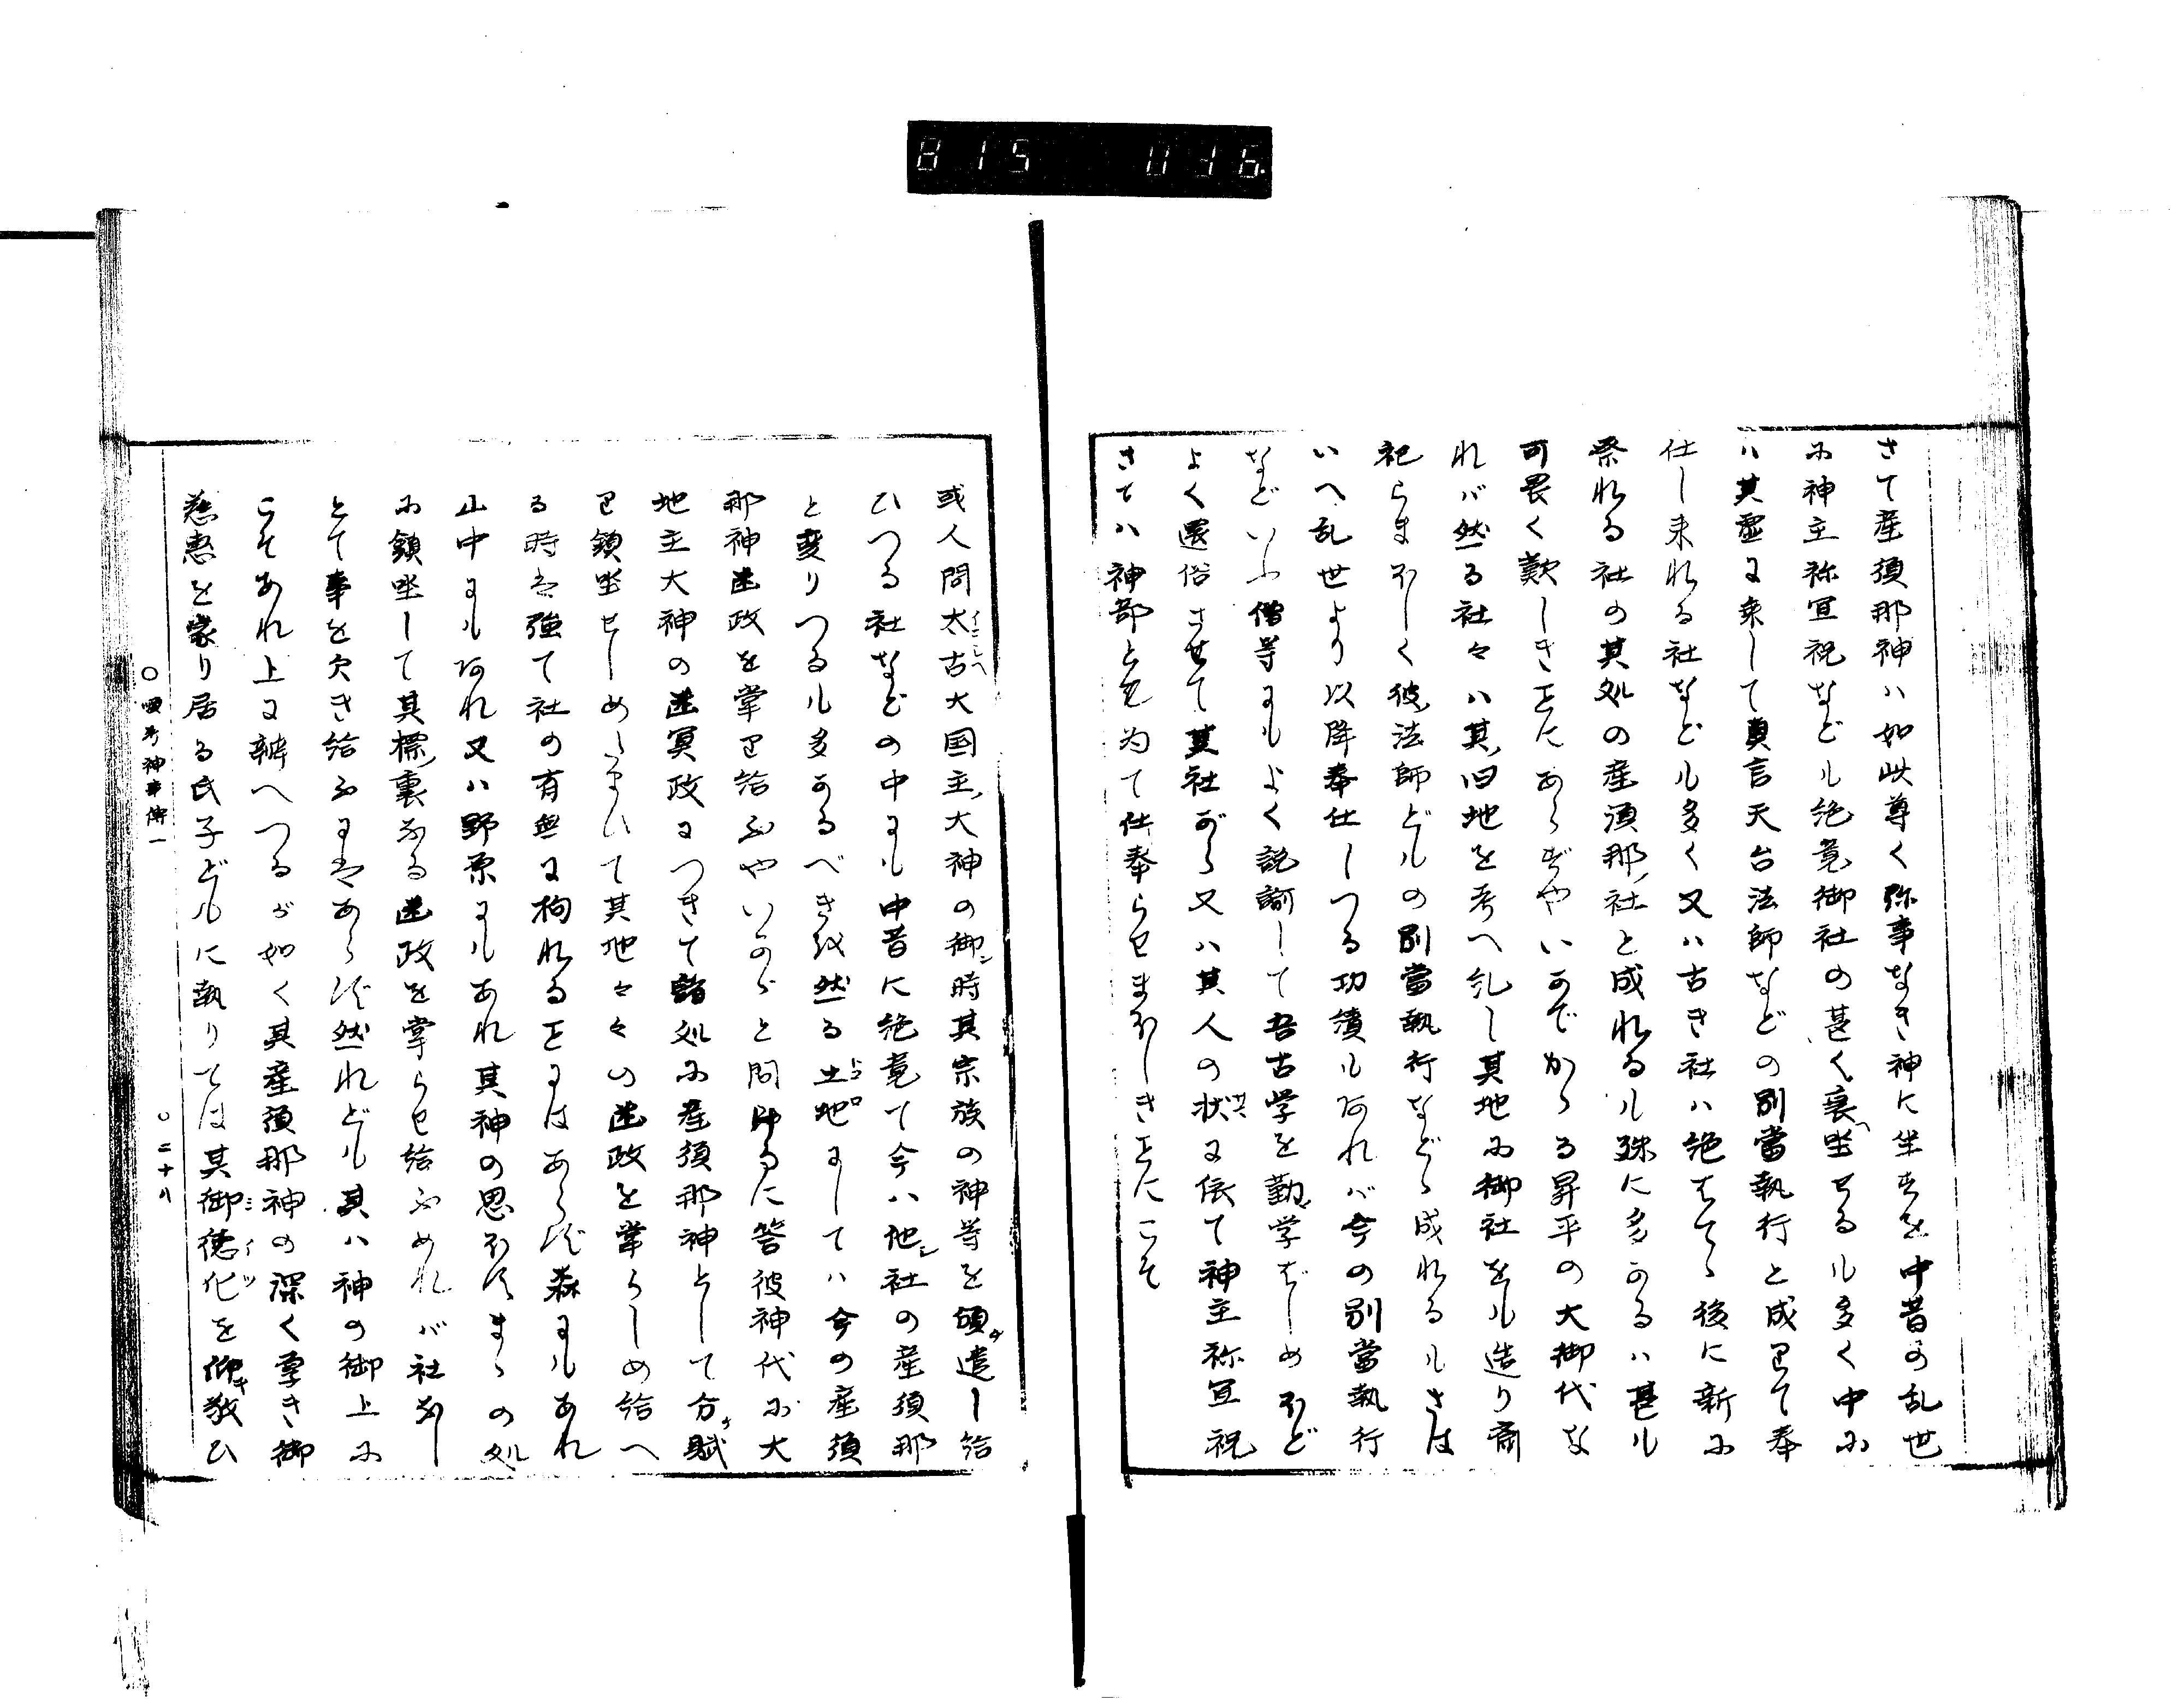 815 016
さて産須那神ハ如此尊く弥事なき神に坐すを中昔の乱世
に神主祢宜祝なども絶竟御社の甚く衰坐せるも多く中に
ハ其虚に乗して真言天台法師などの別當執行と成りて奉
仕し来れる社なども多く又ハ古き社ハ絶はてゝ後に新に
祭れる社の其処の産須那ノ社と成れるも殊に多かるハ甚も
可畏く歎しきことにあらずやいかでかゝる昇平の大御代な
れバ然る社々ハ其ノ旧地を考へ糺し其地に御社をも造り斎
祀らまほしく彼ノ法師どもの別當執行などゝ成れるもさは
いへ乱世より以降奉仕しつる功績もあれバ今の別當執行
などいふ僧等にもよく説諭して吾古学を勤学ばしめほど
よく還俗させて其社がら又ハ其人の状サマに依て神主祢宜祝
さてハ神部とも為て仕奉らせまほしきことにこそ
或人問太古イニシヘ大国主ノ大神の御ン時其宗族の神等を頒ケ遣し給
ひつる社などの中にも中昔に絶竟て今ハ他シ社の産須那
と変りつるも多かるべきを然る土地トコロにしてハ今の産須
那神幽政を掌り給ふやいかゞと問けるに答彼神代に大
地主大神の幽冥政につきて諸処に産須那神として分ケ賦
り鎮坐せしめたまひて其地々々の幽政を掌らしめ給へ
る時は強て社の有無に拘れることにはあらず森にもあれ
山中にもあれ又ハ野原にもあれ其神の思ほすまゝの処
に鎮坐して其標ノ裏なる幽政を掌らせ給ふめれバ社なし
とて事を欠き給ふにはあらず然れども其ハ神の御上に
こそあれ上に辨へつるが如く其産須那神の深く厚き御
慈恵を蒙り居る氏子どもに執りては其御徳化ミイツを仰キ敬ひ
○顕考神事傳一 ○二十八